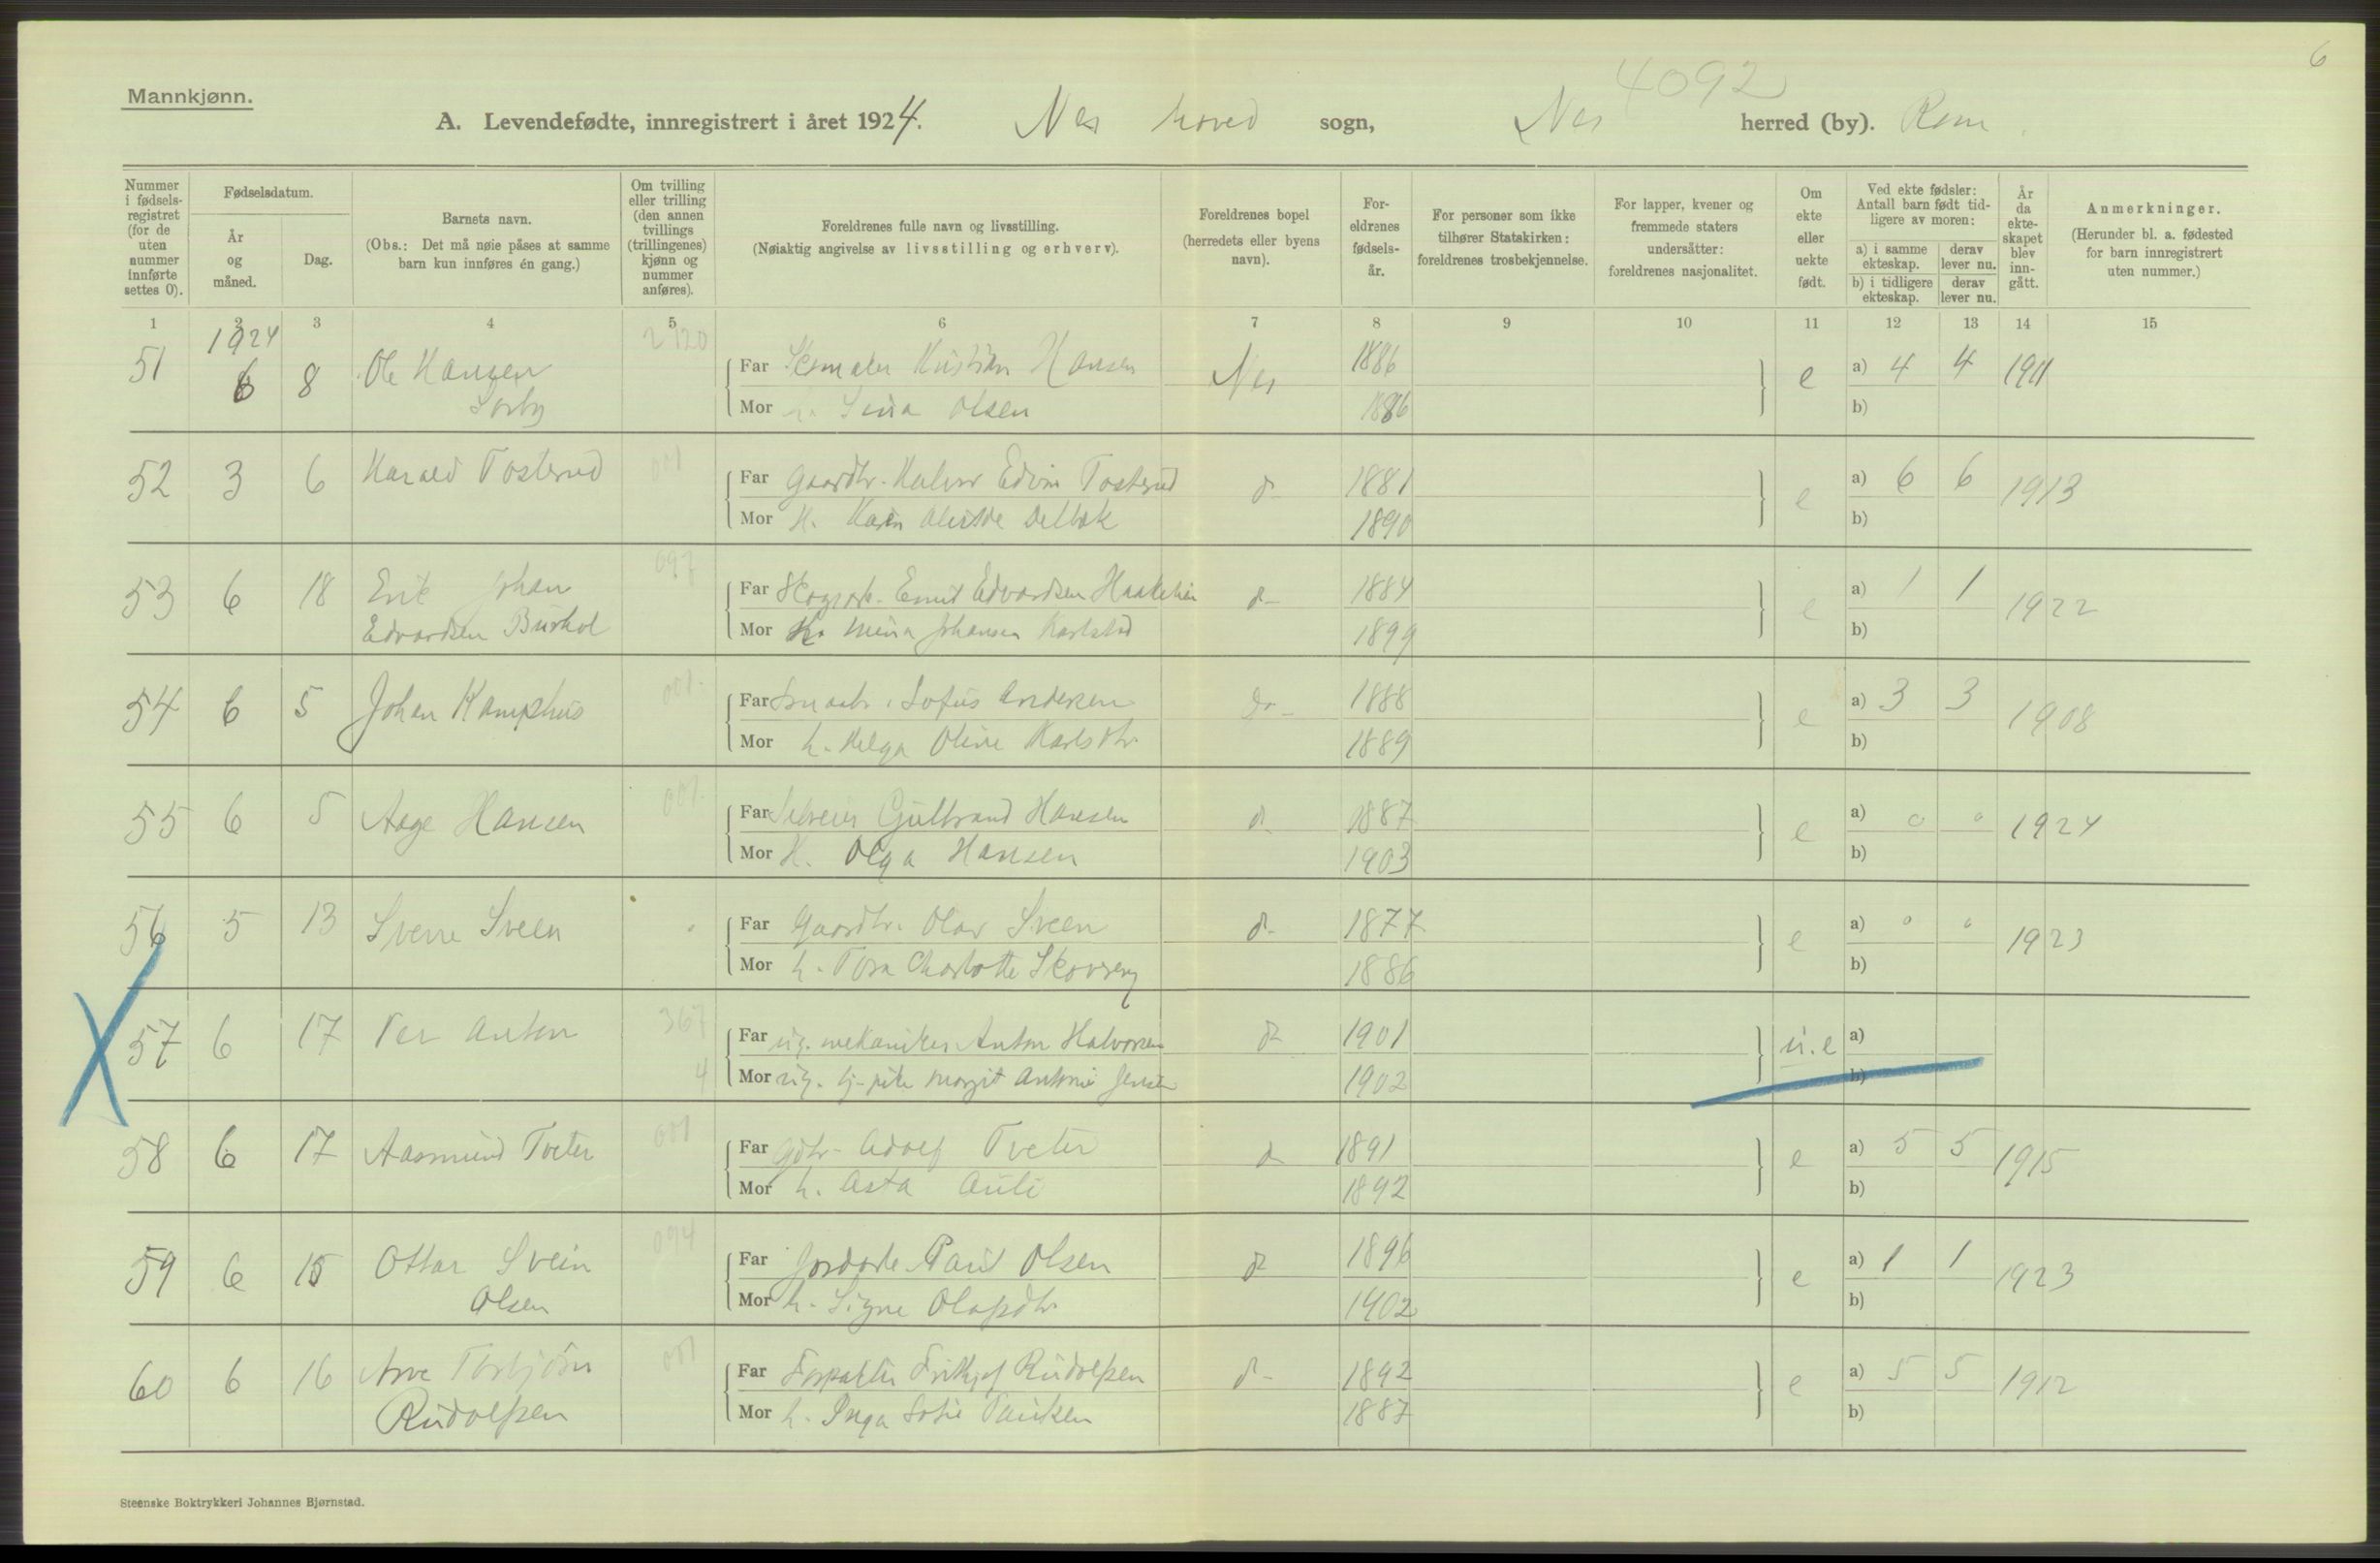 6
Mannkjønn.
4092
A. Levendefødte, innregistrert i året 1924. Nes hoved sogn, Nes herred (by). Rom.
Nummer i fødsels-registret (for de uten nummer innførte settes 0).
Fødselsdatum.
År og måned.
Dag.
Barnets navn.
(Obs.: Det må nøie påses at samme barn kun innføres én gang.)
Om tvilling eller trilling (den annen tvillings (trillingenes) kjønn og nummer anføres).
Foreldrenes fulle navn og livsstilling.
(Nøiaktig angivelse av livsstilling og erhverv).
Foreldrenes bopel (herredets eller byens navn).
For-eldrenes fødsels-år.
For personer som ikke tilhører Statskirken: foreldrenes trosbekjennelse.
For lapper, kvener og fremmede staters undersåtter: foreldrenes nasjonalitet.
Om ekte eller uekte født.
Ved ekte fødsler: Antall barn født tid-ligere av moren:
a) i samme ekteskap. derav lever nu.
b) i tidligere ekteskap. derav lever nu.
År da ekte-skapet blev inn-gått.
Anmerkninger.
(Herunder bl. a. fødested for barn innregistrert uten nummer.)
1 2 3 4 5 6 7 8 9 10 11 12 13 14 15
1924 2120
51 6 8 Ole Hansen Far Kristian Hansen Nes 1886 e a) 4 4 1911
Sørby Mor Olsen 1886 b)
52 3 6 Harald Tosterud 001 Far Gaardbr. Edvin Tosterud d- 1881 e a) 6 6 1913
Mor H. Karen 1890 b)
53 6 18 Erik Johan 097 Far Emil Edvardsen d- 1884 e a) 1 1 1922
Edvardsen Burhol Mor Mina Johansen Karlstad 1899 b)
54 6 5 Johan Kamphus 001 Far Smaabr. Sofus Andersen do- 1888 e a) 3 3 1908
Mor h. Helga Oline Karlsdtr 1889 b)
55 6 5 Aage Hansen 001 Far Gulbrand Hansen d- 1887 e a) 0 0 1924
Mor H. Olga Hansen 1903 b)
56 5 13 Sverre Sveen Far Gaardbr. Olav Sveen d- 1877 e a) 0 0 1923
Mor h. Tora Charlotte 1886 b)
57 6 17 Per Anton 367 Far ug. mekaniker Anton Halvorsen d 1901 u.e a)
4 Mor ug. tj-pike Margit Antonie Jensen 1902 b)
58 6 17 Aasmund Tveter 001 Far Gdbr- Adolf Tveter d 1891 e a) 5 5 1915
Mor h. Asta Auli 1892 b)
59 6 15 Ottar Svein 094 Far Jordarb. Paul Olsen d 1896 e a) 1 1 1923
Olsen Mor h. Signe Olafsdtr 1902 b)
60 6 16 Arve Torbjörn 001 Far Forpakter Frithjof Rudolfsen d- 1892 e a) 5 5 1912
Rudolfsen Mor h. Inga Sofie Paulsen 1887 b)
Steenske Boktrykkeri Johannes Bjørnstad.